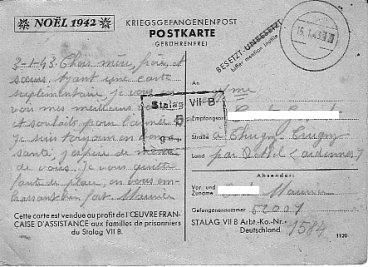 NOËL 1942
KRIEGSGEFANGENENPOST
POSTKARTE
GEBÜHRENFREI
BESETZT-UNBESETZT
3-1-43 Cher mère, frère, et
sœurs. Ayant une carte
supplémentaire, je vous en
vois mes meilleurs
et souhaits, pour l'année
Je suis toujours en bonne
santé, j'espère de même
de vous. Je vous quitte
faute de place, en vous em
brassant bien fort Maurice
An
Stalag VII B
5
gepr
Empfangsort:
Straße à Thugny Trugny
Land par Rethel (Ardennes)
Absender:
Vor- und
Zuname Maurice
Gefangenennummer 52007
STALAG VII B Arbt-Ko.-Nr. 1584
Deutschland
1120
Cette carte est vendue au profit de l'ŒUVRE FRAN-
CAISE D'ASSISTANCE aux familles de prisonniers
du Stalag VII B.